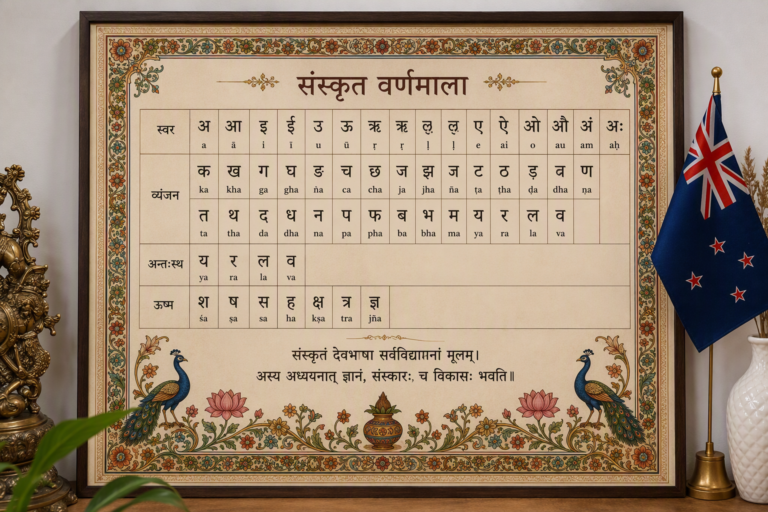 संस्कृत वर्णमाला
स्वर अ आ इ ई उ ऊ ऋ ऋ ऌ ऌ ए ऐ ओ औ अं अः
a ā i ī u ū ṛ ṛ ḷ ḷ e ai o au am aḥ
व्यंजन
क ख ग घ ङ च छ ज झ ज ट ठ ड़ व ण
ka kha ga gha ña ca cha ja jha ña ṭa ṭha ḍa dha ṇa
त थ द ध न प फ ब भ म य र ल व
ta tha da dha na pa pha ba bha ma ya ra la va
अन्तःस्थ य र ल व
ya ra la va
ऊष्म श ष स ह क्ष त्र ज्ञ
śa ṣa sa ha kṣa tra jña
संस्कृतं देवभाषा सर्वविद्याानां मूलम्।
अस्य अध्ययनात् ज्ञानं, संस्कारः, च विकासः भवति॥